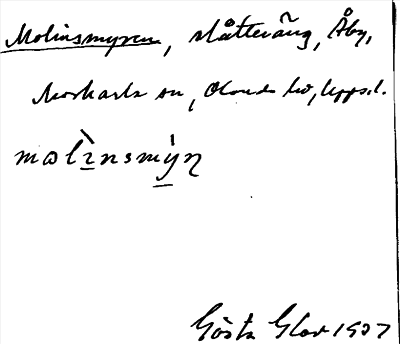 Molinsmyren, slåtteräng, Åby,
Morkarla sn, Olands hd, Uppsl.
molìnsmỳn
Gösta Glav 1927